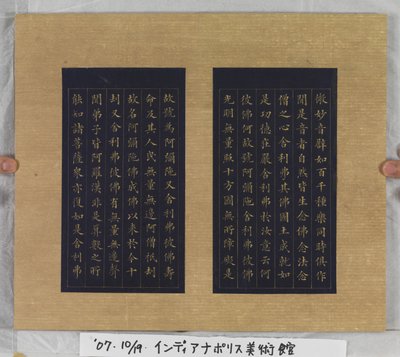 微妙音譬如百千種樂同時俱作
聞是音者自然皆生念佛念法念
僧之心舍利弗其佛國土成就如
是功德莊嚴舍利弗於汝意云何
彼佛何故號阿彌陁舍利弗彼佛
光明無量照十方國無所障礙是
故號為阿彌陁又舍利弗彼佛壽
命及其人民無量無邊阿僧祇劫
故名阿彌陁佛成佛以來於今十
劫又舍利弗彼佛有無量無邊聲
聞弟子皆阿羅漢非是算數之所
能知諸菩薩衆亦復如是舍利弗
'07. 10/19. インディアナポリス美術館